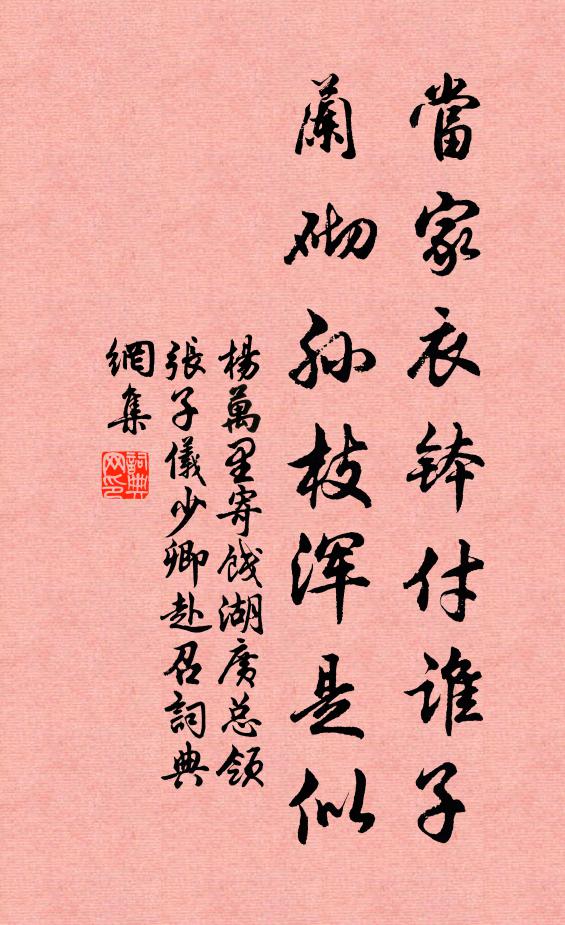 當家衣鉢付誰子
蘭砌孙枝浑是似
楊萬里寄餞湖廣总領
張子儀少卿赴召詞典
網集
詞典
网印